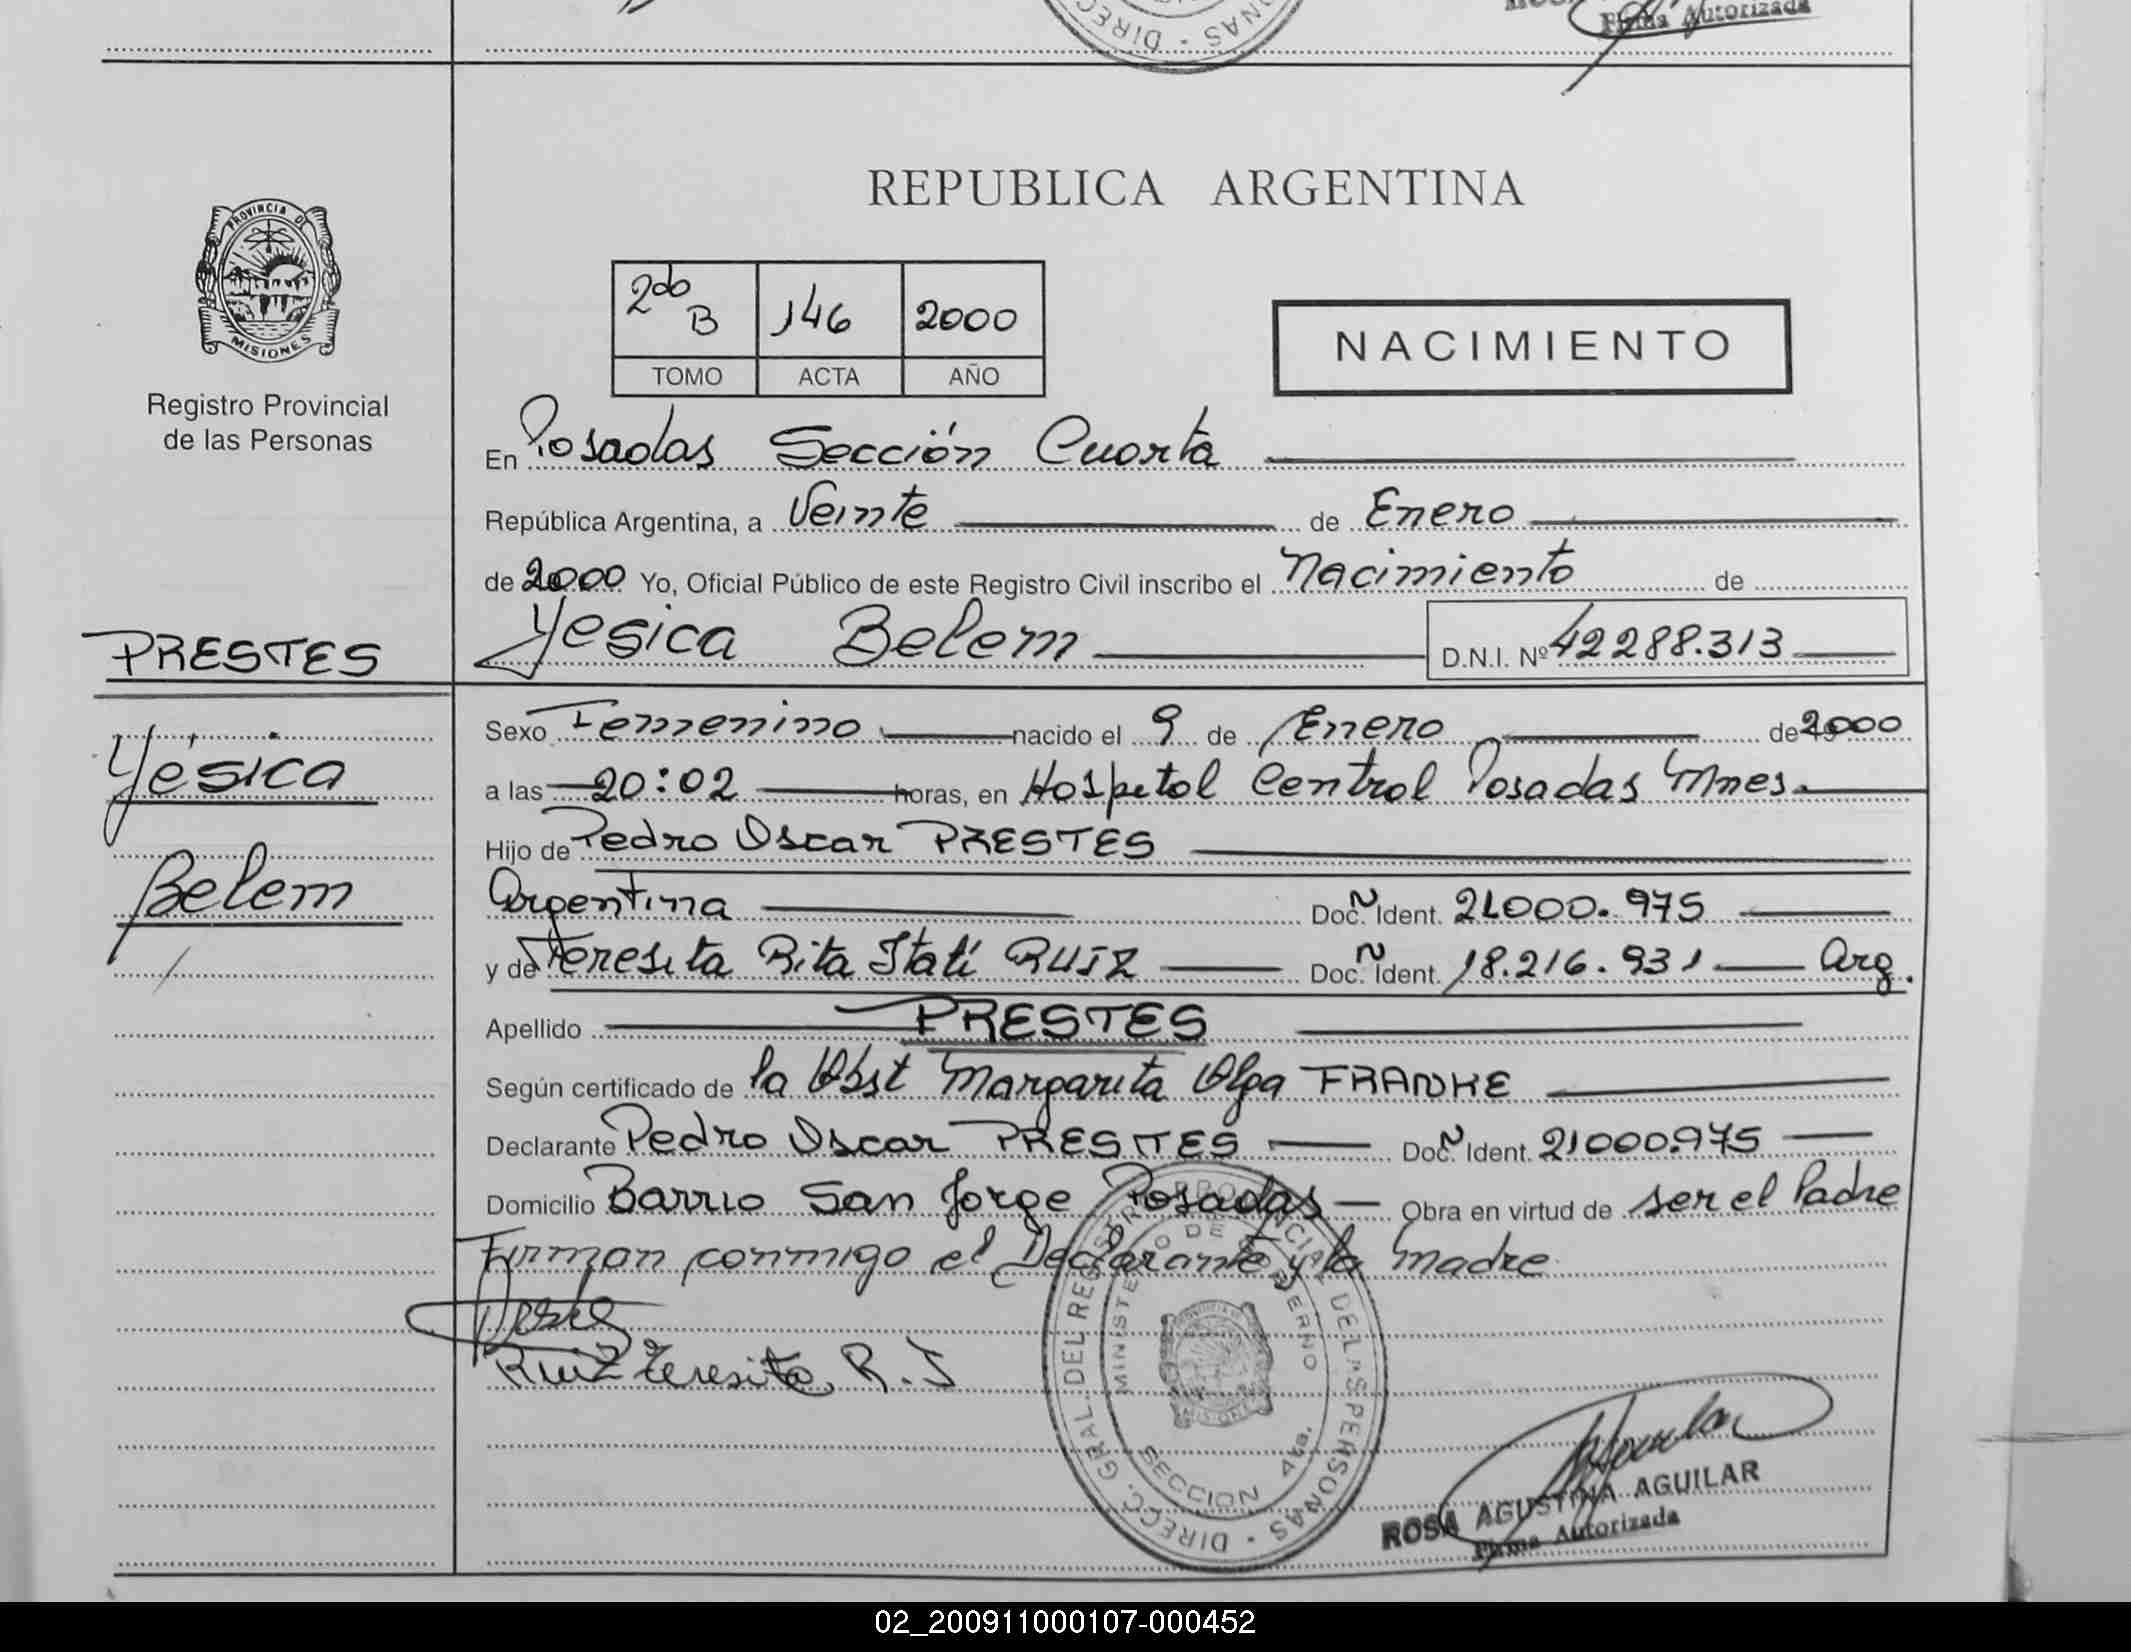 Firma Autorizada
REPUBLICA ARGENTINA
PROVINCIA DE
MISIONES
Registro Provincial
de las Personas
2do B 146 2000
TOMO ACTA AÑO
NACIMIENTO
En Posadas Sección Cuarta
República Argentina, a Veinte de Enero
de 2000 Yo, Oficial Público de este Registro Civil inscribo el Nacimiento de
PRESTES
Yesica Belem D.N.I. Nº 42288.313
Yésica
Belem
Sexo Femenino nacido el 9 de Enero de 2000
a las 20:02 horas, en Hospital Central Posadas Mnes.
Hijo de Pedro Oscar PRESTES
Argentina Doc. Ident. 21000.975
y de Teresita Rita Itatí RUIZ Doc. Ident. 18.216.931 Arg.
Apellido PRESTES
Según certificado de la Obst Margarita Olga FRANKE
Declarante Pedro Oscar PRESTES Doc. Ident. 21000.975
Domicilio Barrio San Jorge Posadas Obra en virtud de ser el Padre
Firman conmigo el Declarante y la Madre
Ruiz Teresita R. I
DIRECC. GRAL. DEL REGISTRO PROVINCIAL DE LAS PERSONAS
MINISTERIO DE GOBIERNO
SECCION 4ta.
ROSA AGUSTINA AGUILAR
Firma Autorizada
02_200911000107-000452